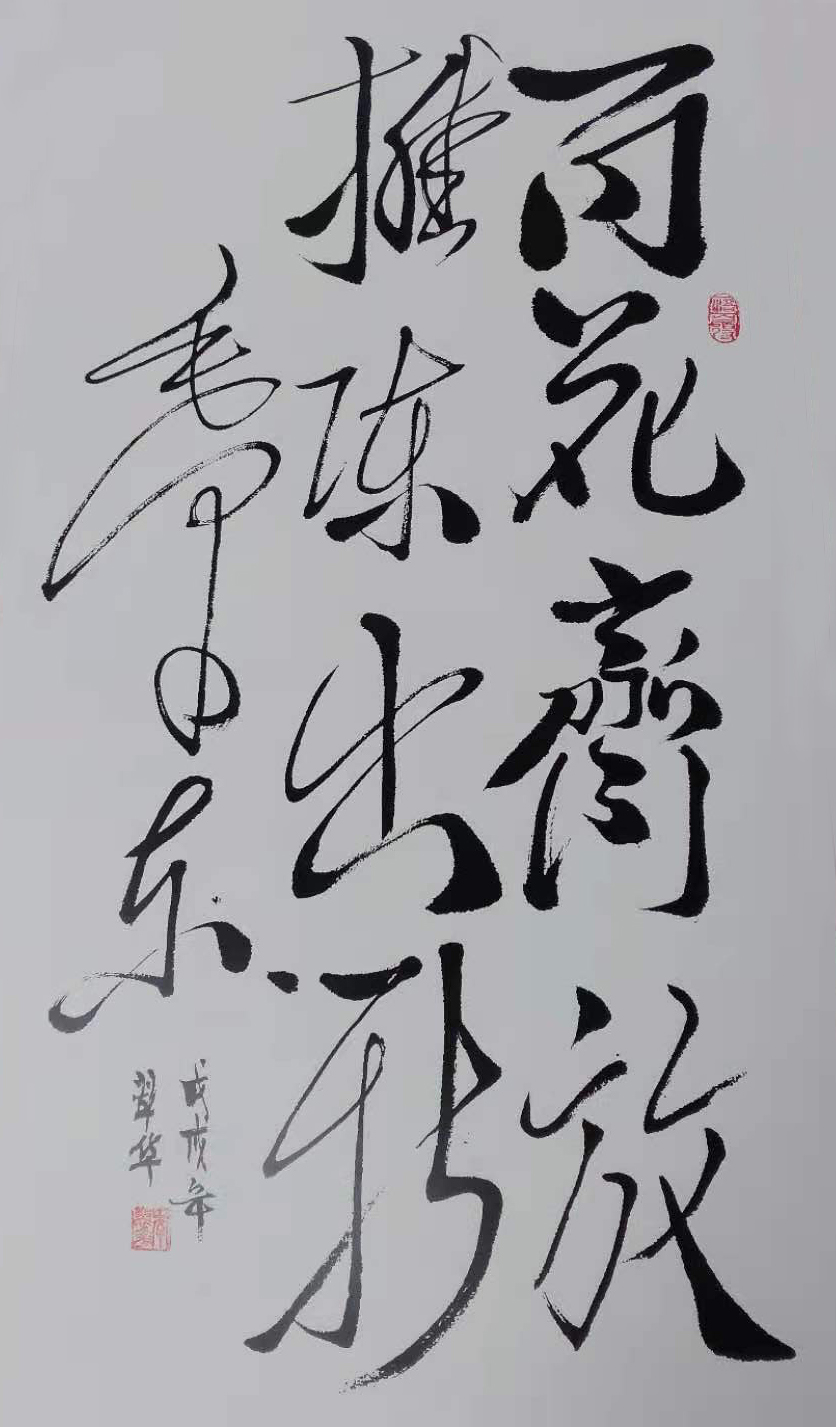 百花齊放
推陈出新
毛泽东
戊戌年
翠华